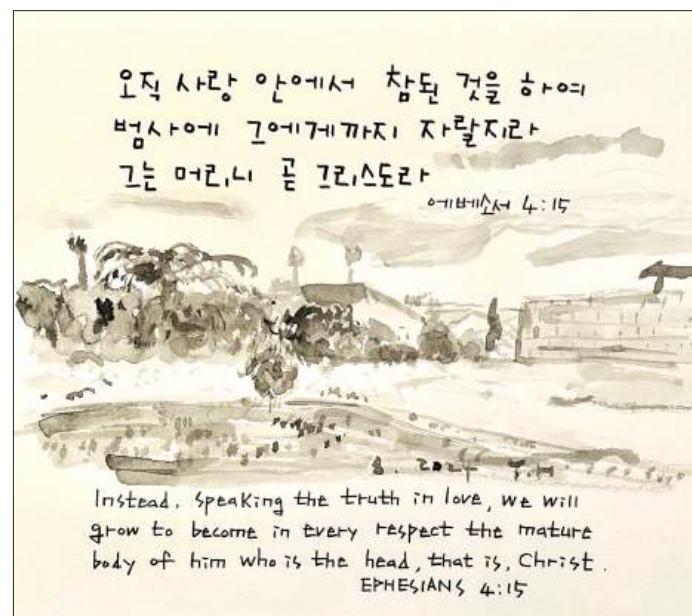 오직 사랑 안에서 참된 것을 하여
범사에 그에게까지 자랄지라
그는 머리니 곧 그리스도라
에베소서 4:15
8. 2024 J.H
Instead, speaking the truth in love, we will
grow to become in every respect the mature
body of him who is the head, that is, Christ.
EPHESIANS 4:15